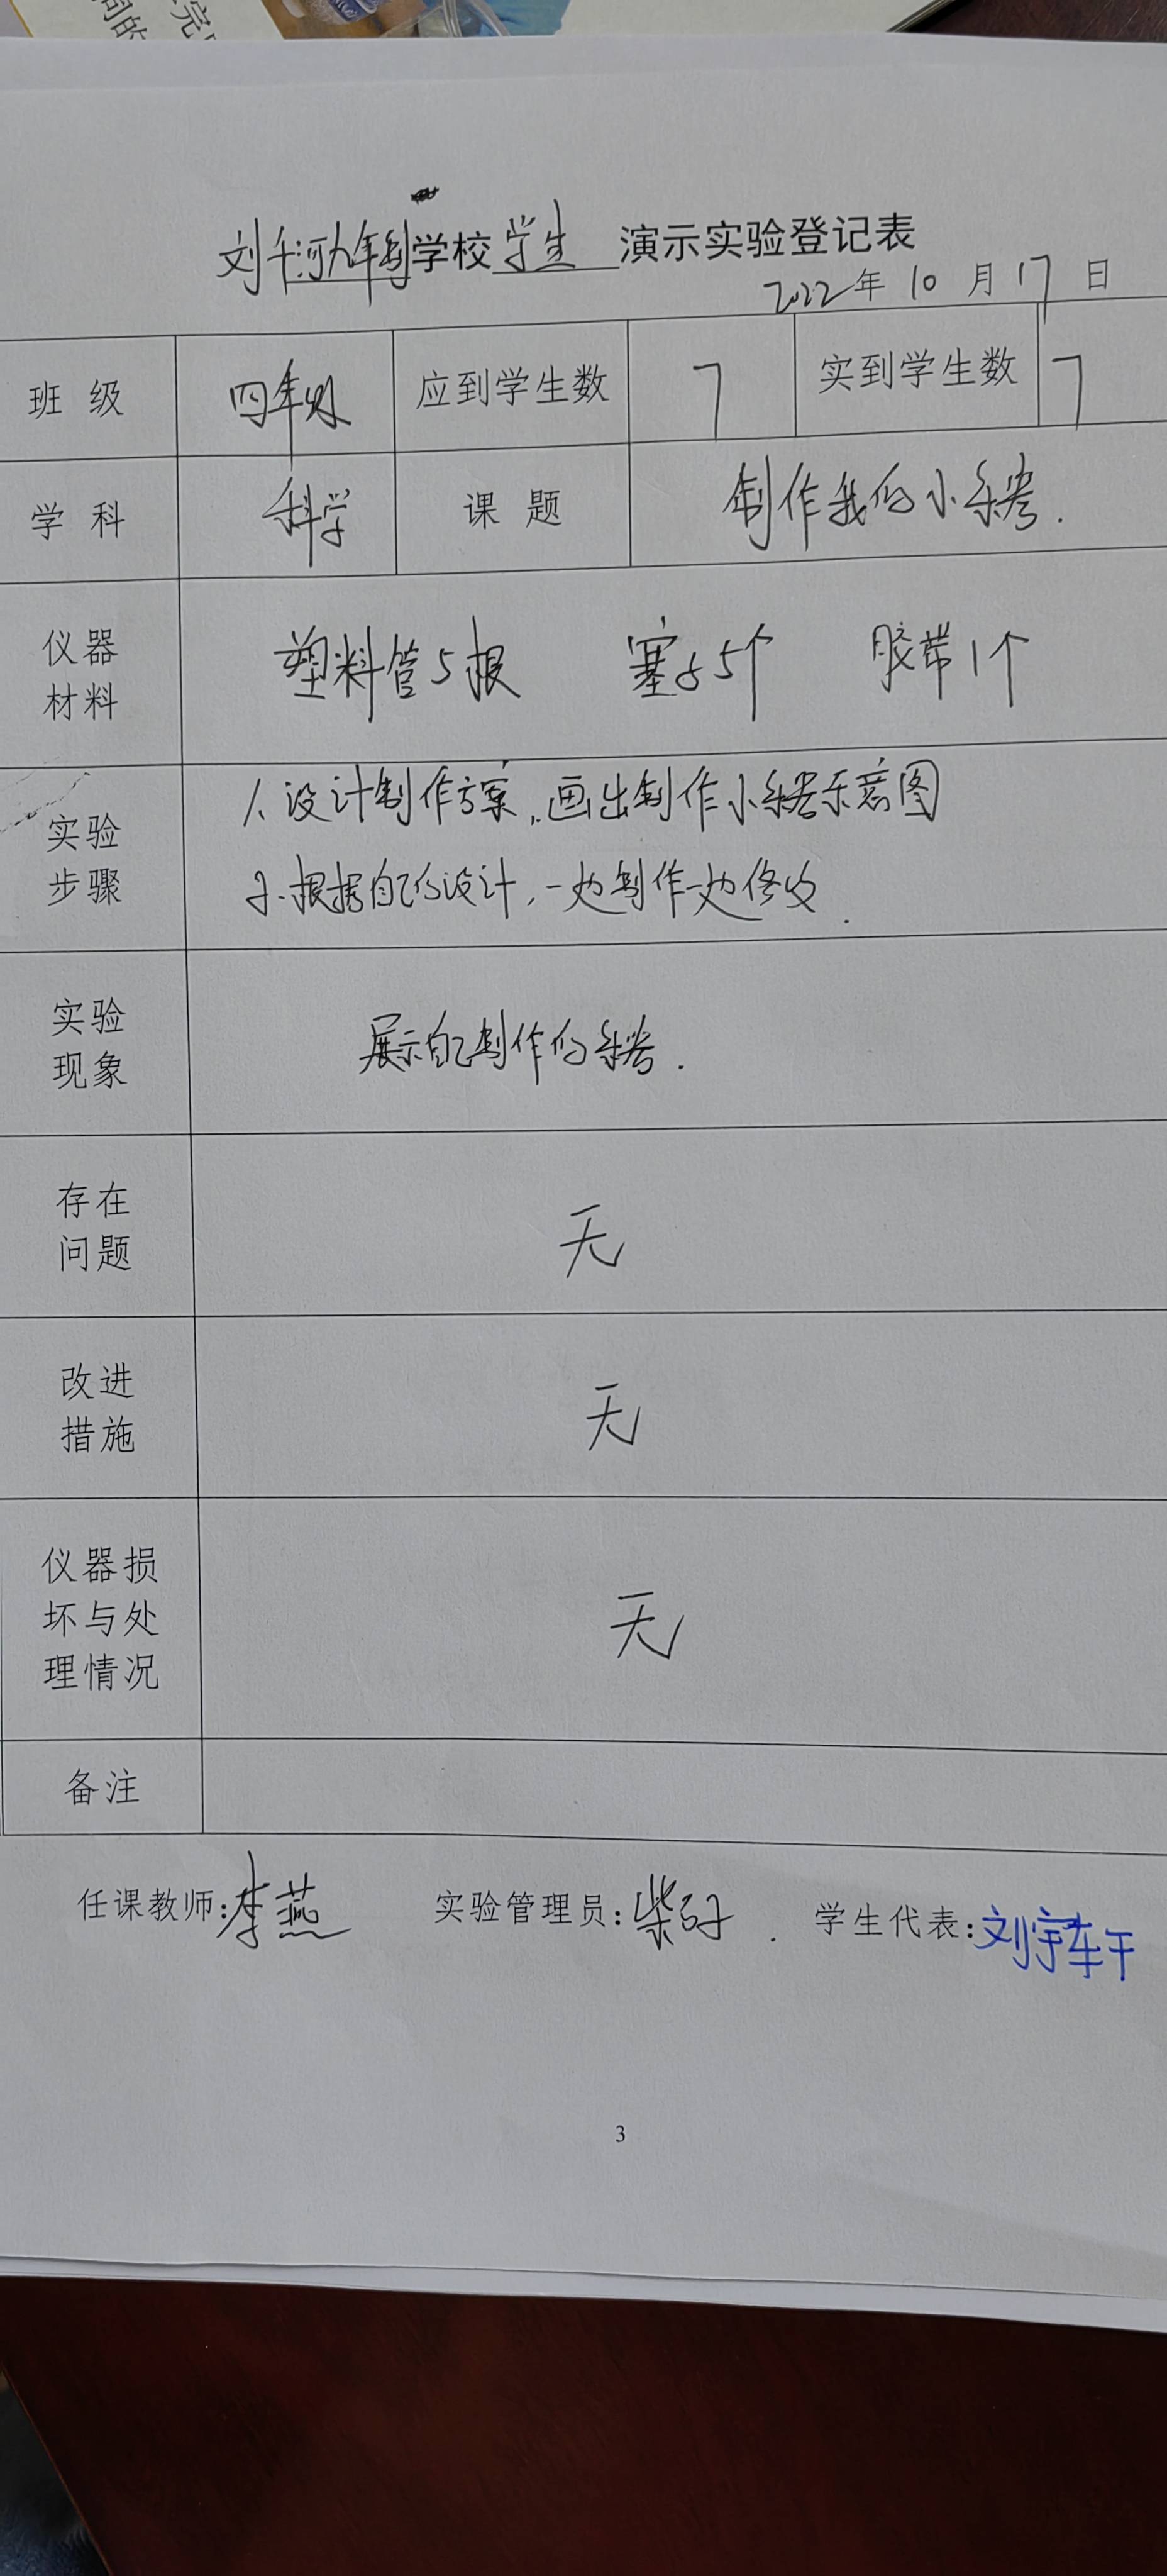 刘千河九年制学校学生 演示实验登记表
2022年 10 月 17 日
班 级 四年级 应到学生数 7 实到学生数 7
学 科 科学 课 题 制作我的小乐器.
仪器 材料 塑料管5根 塞子5个 胶带1个
实验 步骤
1.设计制作方案,画出制作小乐器示意图
2.根据自己的设计,一边制作一边修改.
实验 现象 展示自己制作的乐器.
存在 问题 无
改进 措施 无
仪器损 坏与处 理情况 无
备注
任课教师:李燕 实验管理员:柴 学生代表:刘宇轩
3